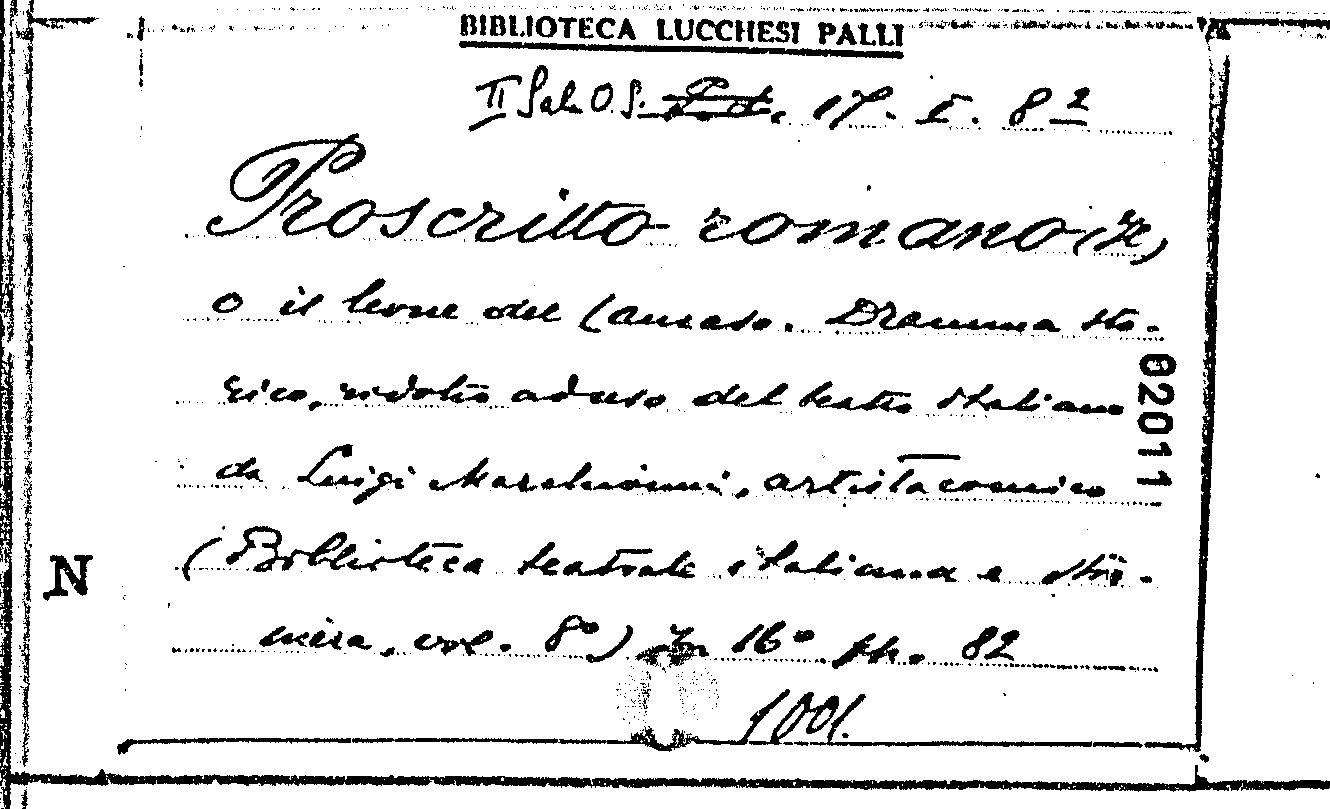 BIBLIOTECA LUCCHESI PALLI
II Sala O.S. 17. I. 8 2
Proscritto romano (Il)
o il leone del Caucaso. Dramma sto-
rico, ridotto ad uso del teatro italiano
da Luigi Marchionni, artista comico
(Biblioteca teatrale italiana e stra-
niera, vol. 8º) In 16º ph. 82
1001.
02011
N